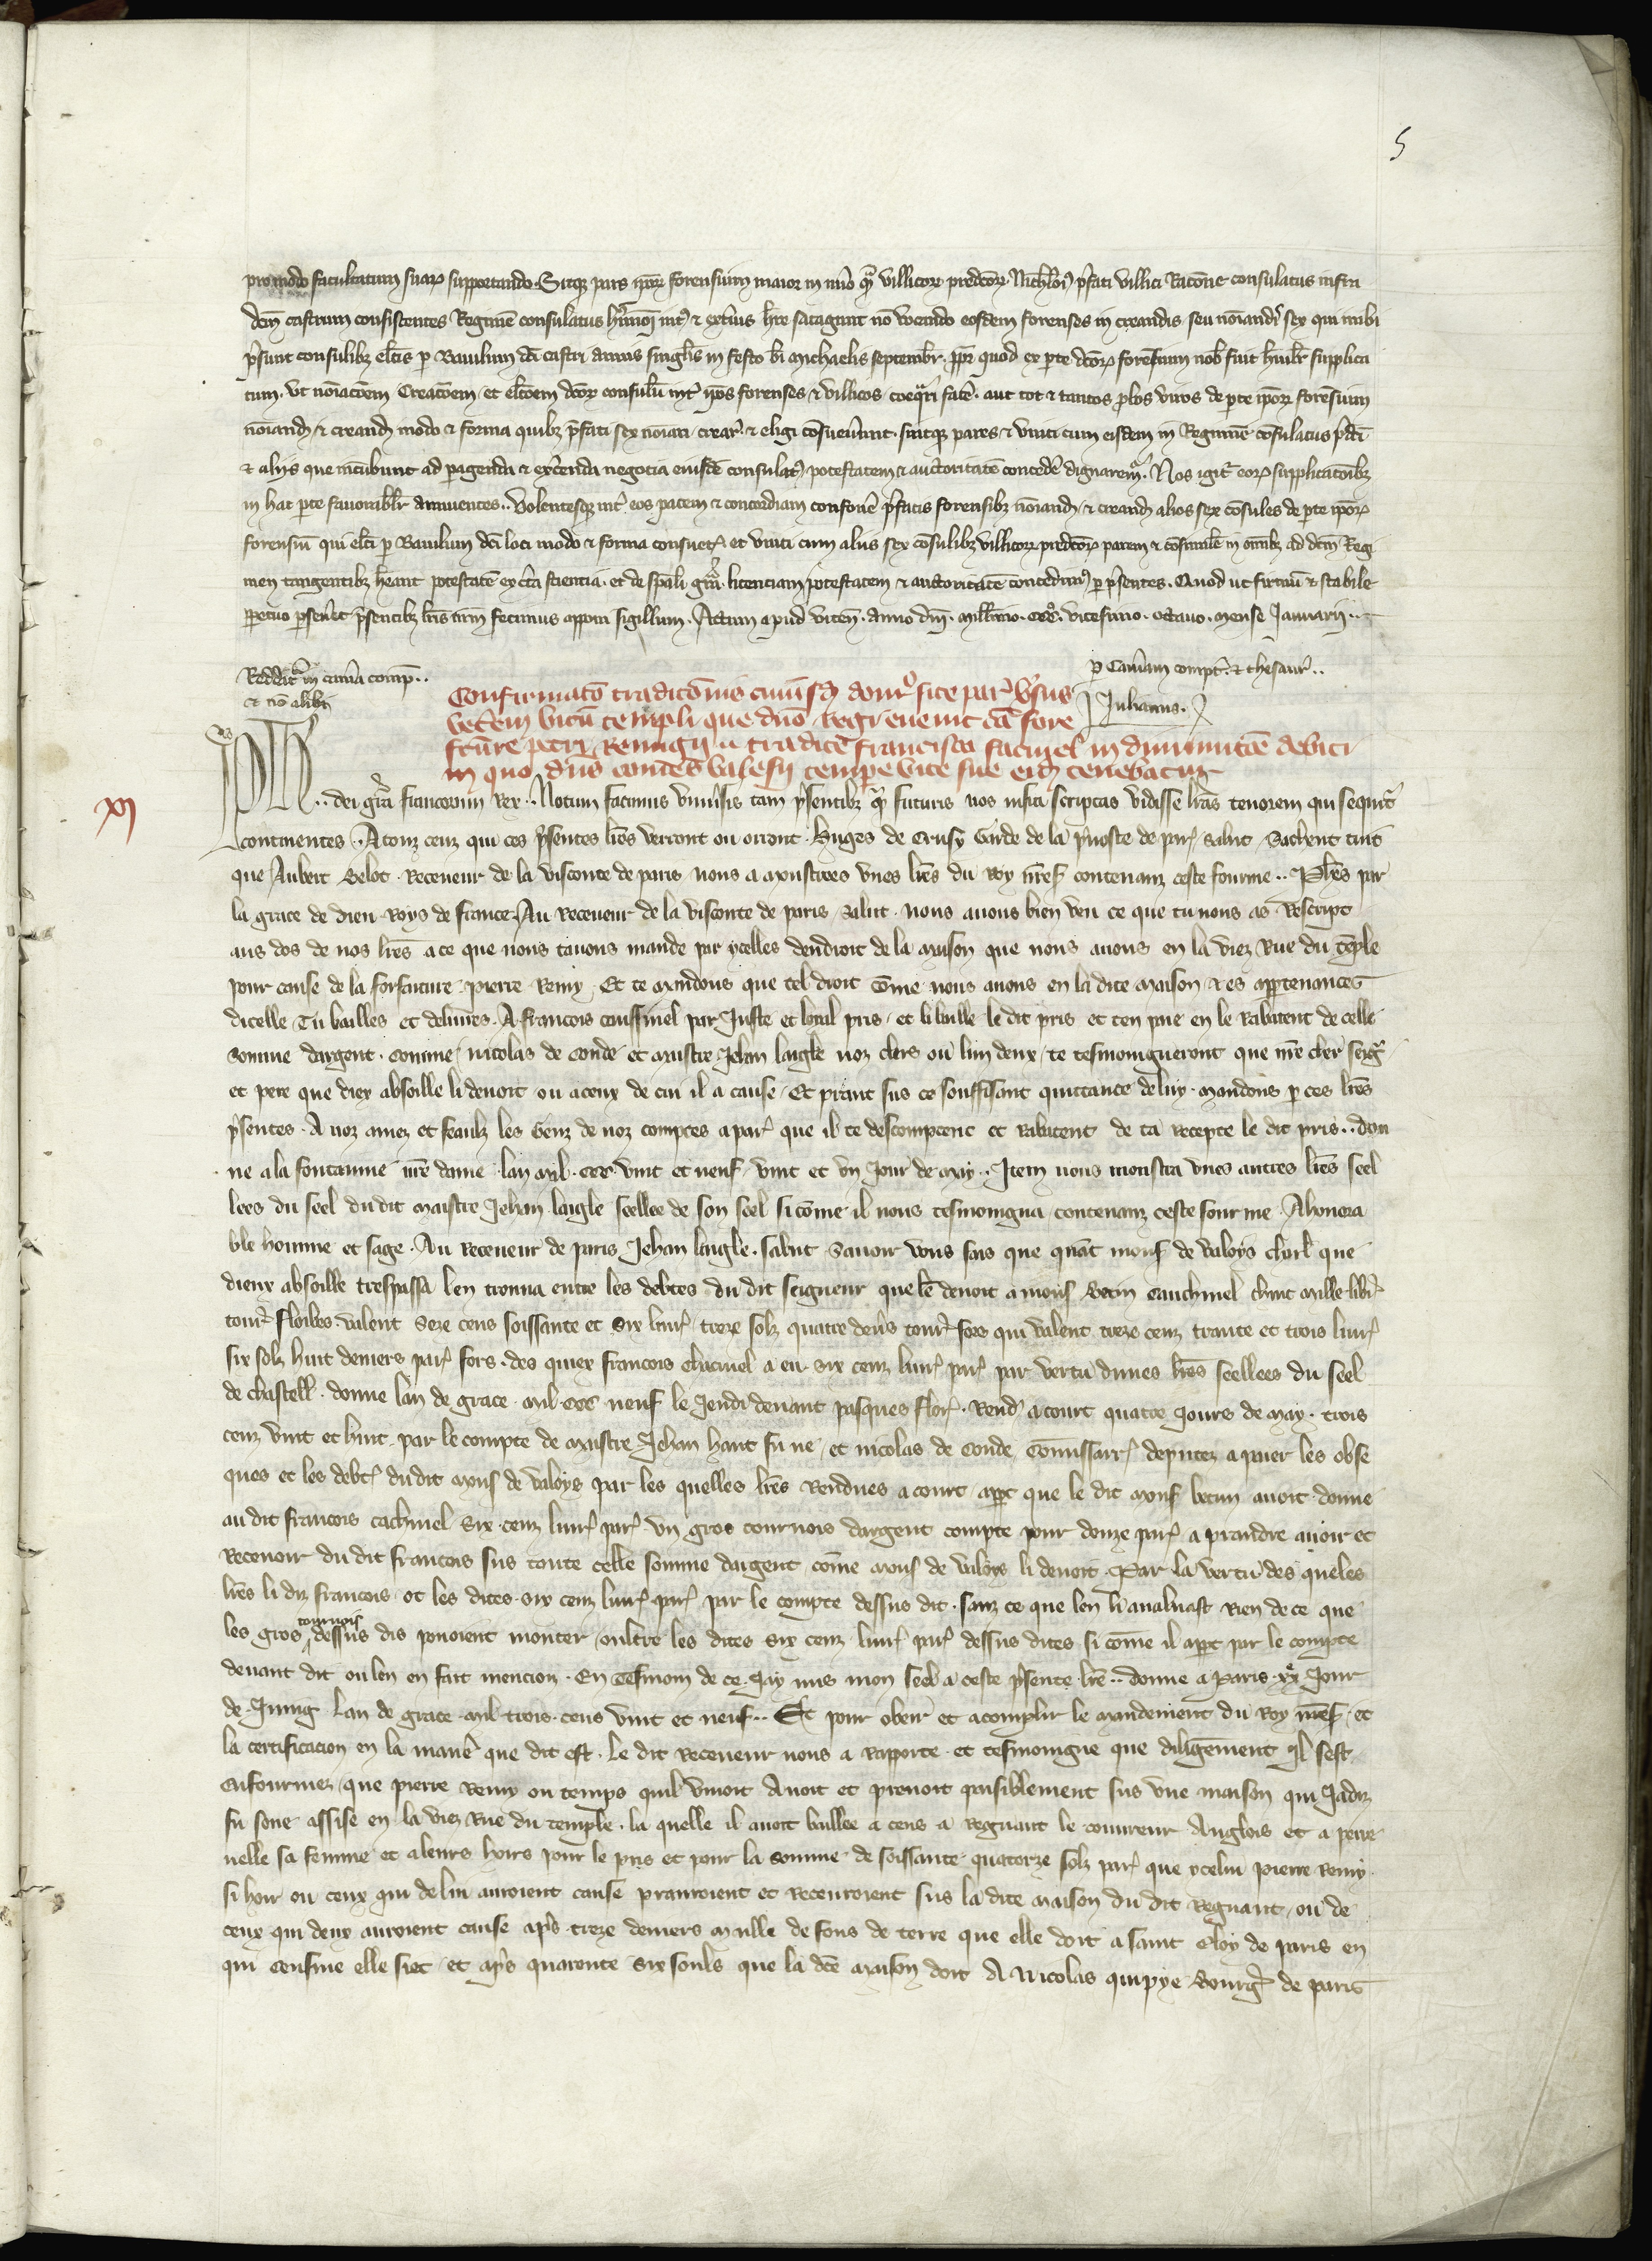 5
pro modo facultatum suarꝝ supportando. Sitqꝫ pars ipoꝝ forensium maior in nūo qᵃ villicoꝝ predc̄oꝝ. Nichilōī p̄fati villici Racōne consulatus infra
dc̄m castrum consistentes Regimē consulatus hmōi int̾ & ext̾ius h̄re satagunt nō vocando eosdem forenses in creandis seu nōīandis sex qui inibi
p̄sunt consulibꝫ elc̄is ꝑ Bauilum dc̄i castri annis singl̄is in festo bī michaelis septembr̄. ꝓpt̄ quod ex ꝑte dc̄oꝝ forensium nob̄ fuit hūilit̄ supplica
tum. ut nōīac̄oem Creac̄oem et elc̄oem dc̄oꝝ consulū int̾ ip̄os forenses & villicos coequari fac̄e. aut tot & tantos ꝓbos viros de ꝑte ipoꝝ forēsium
nōīand̄ & creand̄ modo & forma quibꝫ p̄fati sex nōīari crear̾ & eligi cōsueuerunt. sintqꝫ pares & vniti cum eisdem in Regimine cōsulatus p̄dc̄i
& alijs que incūbunt ad ꝑagenda & exc̄enda negocia eiusdē consulatꝰ potestatem & auctoritatē concedē dignaremur. Nos igit̾ eoꝝ supplicac̄onibꝫ
in hac ꝑte fauorabilit̄ annuentes.. Volentesqꝫ int̾ eos pacem & concordiam confouē p̄fatis forensibꝫ nōīand̄ & creand̄ alios sex cōsules de ꝑte ipoꝝ
forensiū qui elc̄i ꝑ Bauilum dc̄i loci modo & forma consuet̾ et vniti cum aliis sex cōsulibꝫ villicoꝝ predc̄oꝝ parem & cōsimilē in om̄ibꝫ ad dc̄m Regi
men tangentibꝫ h̄eant potestatē ex c̄ta scientia. et de sp̄ali gr̄a. licenciam potestatem & auctoritatē concedimꝰ ꝑ p̄sentes. Quod ut firmū & stabile
ꝑpetuo ꝑseuēt p̄sentibꝫ lr̄is nr̄m fecimus apponi sigillum. Actum apud vicen̄. anno dn̄i. mill̄imo. cccᵒ. vicesimo. octauo. mense Januarii..
Reddit̾ in cam̄a comp̄..
& nō alibi
ꝑ Cam̄am compt̄. & thesaur̄..
Julianus.
Confirmatō tradic̄onis cuiusd̄ domꝰ site par̾ v̾sus
vet̾em vicū templi que dn̄o Regi euenit c̄a fore
fc̄ure petri Remigij & tradite francisco facinel in diminutōē debiti
in quo dn̄s comes valesij tempe vite sue eid̄ tenebatur
xj
Ph̄s.. dei gr̄a francorum Rex.. Notum facimus vniu̾sis tam p̄sentibꝫ qᵃ futuris nos infra scriptas vidisse lr̄as tenorem qui sequit̾
continentes.. A touz ceuz qui ces p̄sentes lr̄es verront ou orront. Hugꝫes de Crusy Garde de la p̄uoste de par̾ salut. Sachent tuit
que Aubert Belot. Receueur de la visconte de paris nous a monstrees vnes lr̄es du Roy nr̄es̾ contenanz ceste fourme.. Ph̄es par
la grace de dieu Roys de france. Au Receueur de la visconte de paris salut. nous auons bien veu ce que tu nous as Rescript
aus dos de nos lr̄es a ce que nous tauons mande par ycelles dendroit de la maison que nous auons en la viez Rue du tēple
pour cause de la forfaiture pierre Remy. Et te mandons que tel droit cōme nous auons en la dite maison & es appertenances
dicelle Tu bailles et deliures A francois caussinel par Juste et loial pris et li baille le dit pris et ten paie en le Rabatent de celle
somme dargent. comme nicolas de conde et maistre Jehan laigle noz clers ou lun deux te tesmoigneront que nr̄e cher seigr̄
et pere que diex absoille li deuoit ou a ceux de cui il a cause. Et prant sus ce souffisant quittance de luy. mandons ꝑ ces lr̄es
p̄sentes. A noz amez et feaulz les Genz de noz comptes a par̾ que il te descomptent et Rabatent de ta Recepte le dit pris.. don
ne a la fontainne nr̄e dame lan mil. ccc vint et neuf vint et vn Jour de may.. Item nous monstra vnes autres lr̄es seel
lees du seel du dit maistre Jehan laigle seellee de son seel si cōme il nous tesmoigna contenanz ceste fourme. A honora
ble homme et sage. Au Receueur de paris Jehan laigle. salut. Sauoir vous fais que quāt mons̾ de valoys charl̄ que
dieux absoille trespassa len trouua entre les debtes du dit seigneur que lē deuoit a mons̾ Betin cauchinel huit mille libr̾
tour̾ floibes. valent Seze cens soissante et six liur̾ treze solz quatre den̄s tour̾ fors qui valent treze cenz trante et trois liur̾
six solz huit deniers par̾ fors. des quiex francois chacinel a eu six cenz liur̾ par̾ par vertu dunes lr̄es seellees du seel
de chastell̄. donne lan de grace mil ccc neuf le Jeudi deuant pasques flor̾. Rend̄ a court quatre Jours de may. trois
cenz vint et huit par le compte de maistre Jehan haut fu ne et nicolas de conde Cōmissair̾ deputez a paier les obse
ques et les debt̾ du dit mons̾ de valoys par les quelles lr̄es Rendues a court appt̄ que le dit mons̾ betin auoit donne
au dit francois cachinel six cenz liur̾ par̾ vn gros tournois dargent compte pour douze par̾ a prandre auoir et
Receuoir du dit francois sus toute celle somme dargent cōme mons̾ de valoys li deuoit. Par la vertu des queles
lr̄es li diz francois ot les dites six cenz liur̾ par̾ par le compte dessus dit. sanz ce que len li aualuast Rien de ce que
les gros tournois dessus dis pouoient monter oultre les dites six cenz liur̾ par̾ dessus dites si cōme il appt̄ par le compte
deuant dit ou len en fait mencion. En Tesmoin de ce Jay mis mon seel a ceste p̄sente lr̄e.. donne a Paris. xxᵉ Jour
de Juing lan de grace mil trois cens vint et neuf.. Et pour obeir et acomplir le mandement du Roy nr̄es̾ et
la certificacion en la manie̾ que dit est. le dit Receueur nous a Rapporte et tesmoigne que diligēment Il sest
enfourmez que pierre Remy ou temps quil viuoit Auoit et prenoit paisiblement sus vne maison qui Jadiz
fu seue assise en la viez Rue du temple. la quelle il auoit baillee a cens a Regnaut le couureur Anglois et a perre
nelle sa femme et a leurs hoirs pour le pris et pour la somme de soissante quatorze solz par̾ que ycelui pierre Remy
si hoir ou ceux qui de lui auroient cause pranroient et Receuroient sus la dite maison du dit Regnaut ou de
ceux qui deux auroient cause ap̄s treze deniers maille de fons de terre que elle doit a saint Eloy de paris en
qui censiue elle siet et ap̄s quarente six souls que la dc̄e maison doit A Nicolas quipye Bourg̾ de paris